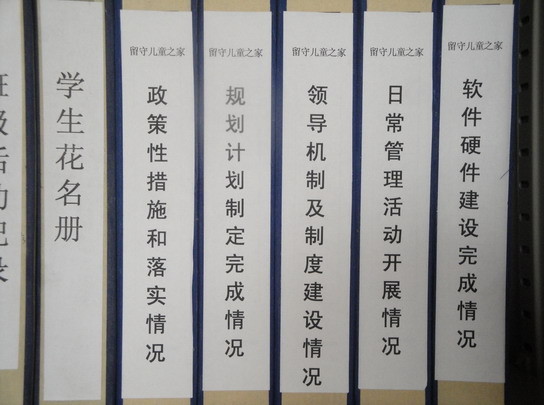 班级活动记录
学生花名册
留守儿童之家
政策性措施和落实情况
留守儿童之家
规划计划制定完成情况
留守儿童之家
领导机制及制度建设情况
留守儿童之家
日常管理活动开展情况
留守儿童之家
软件硬件建设完成情况